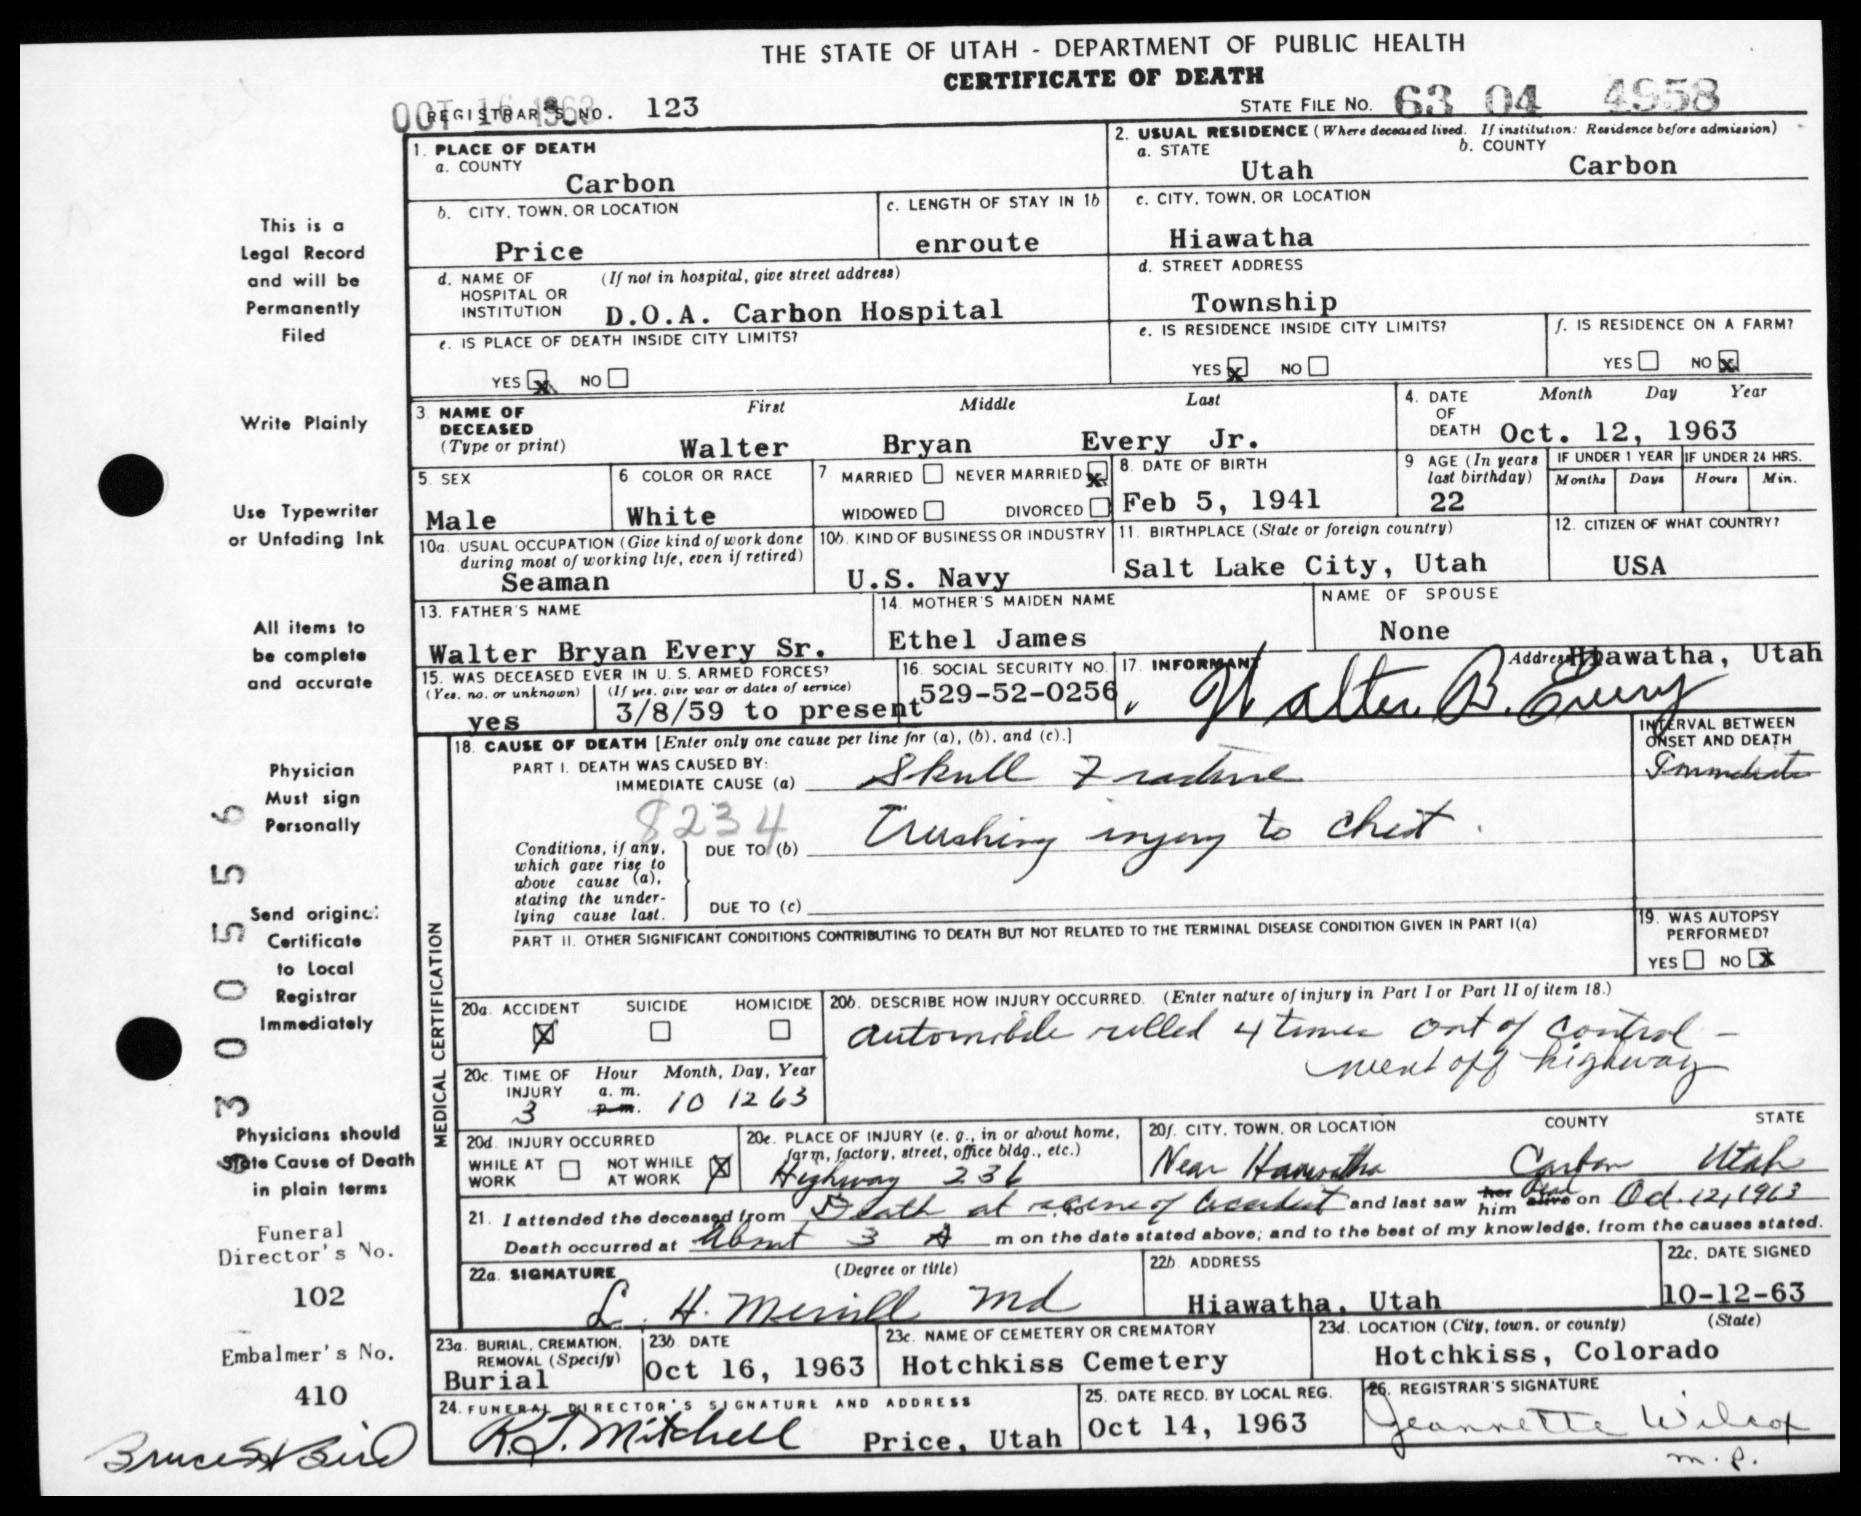 THE STATE OF UTAH - DEPARTMENT OF PUBLIC HEALTH
CERTIFICATE OF DEATH
OCT 16 1963
REGISTRAR'S NO. 123
STATE FILE NO. 63 04 4958
1. PLACE OF DEATH
a. COUNTY
Carbon
2. USUAL RESIDENCE (Where deceased lived. If institution: Residence before admission)
a. STATE
Utah
b. COUNTY
Carbon
b. CITY, TOWN, OR LOCATION
Price
c. LENGTH OF STAY IN 1b
enroute
c. CITY, TOWN, OR LOCATION
Hiawatha
d. NAME OF HOSPITAL OR INSTITUTION
(If not in hospital, give street address)
D.O.A. Carbon Hospital
d. STREET ADDRESS
Township
e. IS PLACE OF DEATH INSIDE CITY LIMITS?
YES x NO
e. IS RESIDENCE INSIDE CITY LIMITS?
YES x NO
f. IS RESIDENCE ON A FARM?
YES NO x
3. NAME OF DECEASED
(Type or print)
First Middle Last
Walter Bryan Every Jr.
4. DATE OF DEATH
Month Day Year
Oct. 12, 1963
5. SEX
Male
6 COLOR OR RACE
White
7 MARRIED NEVER MARRIED x
WIDOWED DIVORCED
8. DATE OF BIRTH
Feb 5, 1941
9 AGE (In years last birthday)
22
IF UNDER 1 YEAR
Months Days
IF UNDER 24 HRS.
Hours Min.
10a. USUAL OCCUPATION (Give kind of work done during most of working life, even if retired)
Seaman
10b. KIND OF BUSINESS OR INDUSTRY
U.S. Navy
11. BIRTHPLACE (State or foreign country)
Salt Lake City, Utah
12. CITIZEN OF WHAT COUNTRY?
USA
13. FATHER'S NAME
Walter Bryan Every Sr.
14. MOTHER'S MAIDEN NAME
Ethel James
NAME OF SPOUSE
None
15. WAS DECEASED EVER IN U. S. ARMED FORCES?
(Yes, no, or unknown)
yes
(If yes, give war or dates of service)
3/8/59 to present
16. SOCIAL SECURITY NO.
529-52-0256
17. INFORMANT
Walter B. Every
Address Hiawatha, Utah
MEDICAL CERTIFICATION
18. CAUSE OF DEATH [Enter only one cause per line for (a), (b), and (c).]
INTERVAL BETWEEN ONSET AND DEATH
PART I. DEATH WAS CAUSED BY:
IMMEDIATE CAUSE (a) Skull Fracture
Immediate
8234
Conditions, if any, which gave rise to above cause (a), stating the underlying cause last.
DUE TO (b) Crushing injury to chest.
DUE TO (c)
PART II. OTHER SIGNIFICANT CONDITIONS CONTRIBUTING TO DEATH BUT NOT RELATED TO THE TERMINAL DISEASE CONDITION GIVEN IN PART I(a)
19. WAS AUTOPSY PERFORMED?
YES NO x
20a. ACCIDENT SUICIDE HOMICIDE
x
20b. DESCRIBE HOW INJURY OCCURRED. (Enter nature of injury in Part I or Part II of item 18.)
automobile rolled 4 times out of control -
went off highway
20c. TIME OF INJURY
Hour Month, Day, Year
a. m.
p. m.
3 10 12 63
20d. INJURY OCCURRED
WHILE AT WORK NOT WHILE AT WORK x
20e. PLACE OF INJURY (e. g., in or about home, farm, factory, street, office bldg., etc.)
Highway 236
20f. CITY, TOWN, OR LOCATION COUNTY STATE
Near Hiawatha Carbon Utah
21. I attended the deceased from Death at scene of accident to and last saw her him alive Dead on Oct. 12, 1963
Death occurred at About 3 A m on the date stated above; and to the best of my knowledge, from the causes stated.
22a. SIGNATURE (Degree or title)
L. H. Merrill Md
22b. ADDRESS
Hiawatha, Utah
22c. DATE SIGNED
10-12-63
23a. BURIAL, CREMATION, REMOVAL (Specify)
Burial
23b DATE
Oct 16, 1963
23c. NAME OF CEMETERY OR CREMATORY
Hotchkiss Cemetery
23d. LOCATION (City, town, or county) (State)
Hotchkiss, Colorado
24. FUNERAL DIRECTOR'S SIGNATURE AND ADDRESS
R. J. Mitchell Price, Utah
25. DATE RECD. BY LOCAL REG.
Oct 14, 1963
26. REGISTRAR'S SIGNATURE
Jeannette Wilcox
m. p.
This is a
Legal Record
and will be
Permanently
Filed
Write Plainly
Use Typewriter
or Unfading Ink
All items to
be complete
and accurate
Physician
Must sign
Personally
Send original
Certificate
to Local
Registrar
Immediately
Physicians should
State Cause of Death
in plain terms
Funeral
Director's No.
102
Embalmer's No.
410